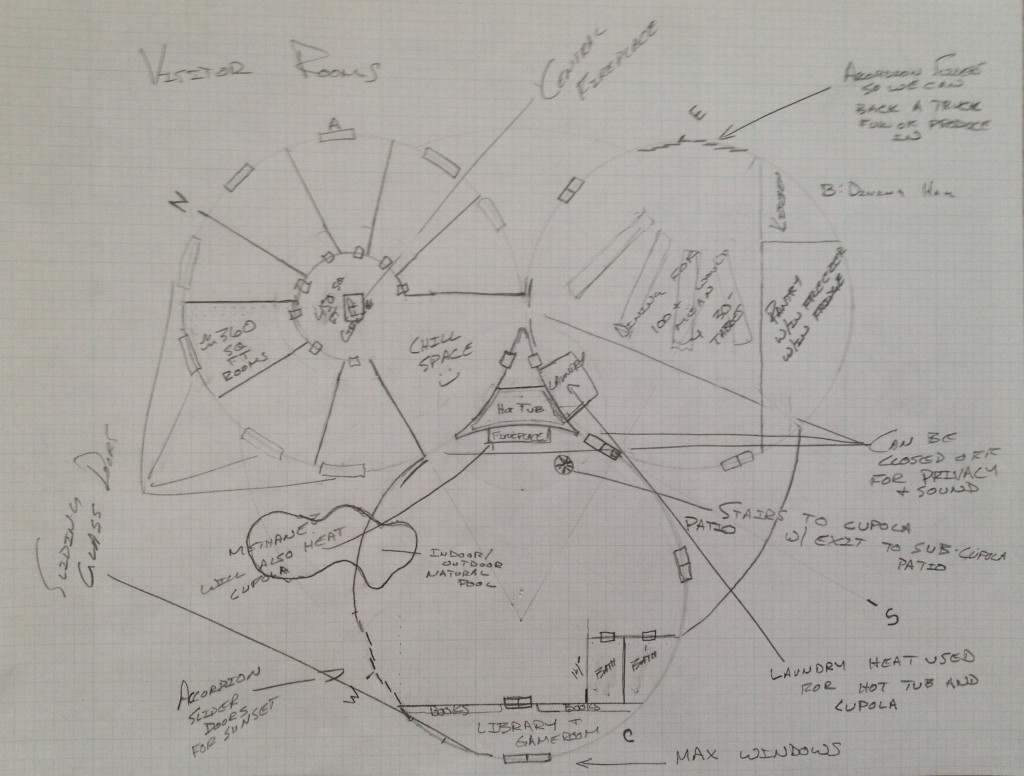 VISITOR ROOMS
CENTRAL
FIREPLACE
SO WE CAN
BACK A TRUCK
FULL OF PRODUCE
IN
E
A
N
B: DINING HALL
KITCHEN
PANTRY
W/IN FREEZER
W/IN FRIDGE
DINING
100 +
30-
360
SQ
FT
ROOMS
CHILL
SPACE
LAUNDRY
HOT TUB
FIREPLACE
CAN BE
CLOSED OFF
FOR PRIVACY
+ SOUND
SLIDING
GLASS DOORS
METHANE?
WILL ALSO HEAT
CUPOLA
INDOOR/
OUTDOOR
NATURAL
POOL
PATIO
STAIRS TO CUPOLA
W/ EXIT TO SUB-CUPOLA
PATIO
S
BATH
BATH
LAUNDRY HEAT USED
FOR HOT TUB AND
CUPOLA
ACCORDION
SLIDER
DOORS
FOR SUNSET
W
BOOKS
BOOKS
LIBRARY +
GAMEROOM
C
MAX WINDOWS